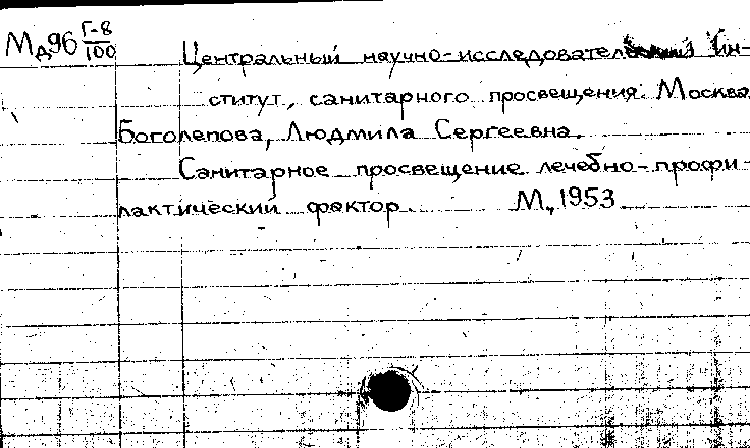 Мд96 Г-8/100
Центральный научно-исследовательский Ин-
ститут, санитарного просвещения. Москва.
Боголепова, Людмила Сергеевна.
Санитарное просвещение лечебно-профи-
лактический фактор. М., 1953